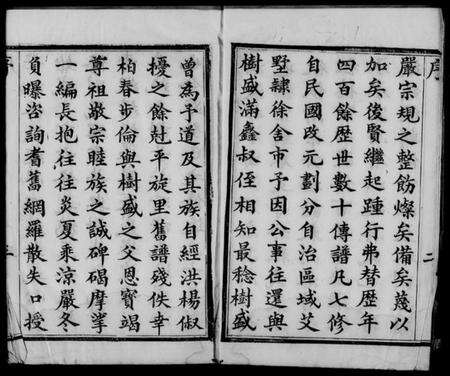 序
二
嚴宗規之整飭燦矣備矣蔑以
加矣後賢繼起踵行弗替歷年
四百餘歷世數十傳譜凡七修
自民國改元劃分自治區域艾
墅隸徐舍市予因公事往還與
樹盛滿鑫叔侄相知最稔樹盛
曾為予道及其族自經洪楊俶
擾之餘尅平旋里舊譜殘佚幸
柏春步倫與樹盛之父恩寶竭
尊祖敬宗睦族之誠碑碣摩挲
一編長抱往往炎夏乘涼嚴冬
負曝咨詢耆舊網羅散失口授
序
三